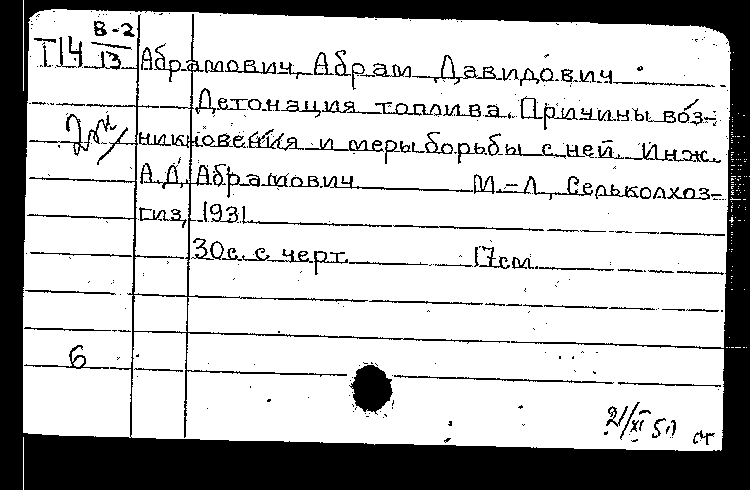 Т14 В-2
13 Абрамович, Абрам Давидович
Детонация топлива. Причины воз-
никновения и меры борьбы с ней. Инж.
А.Д. Абрамович М.-Л, Сельколхоз-
гиз, 1931.
30с. с черт. 17см.
6
21/XI 50